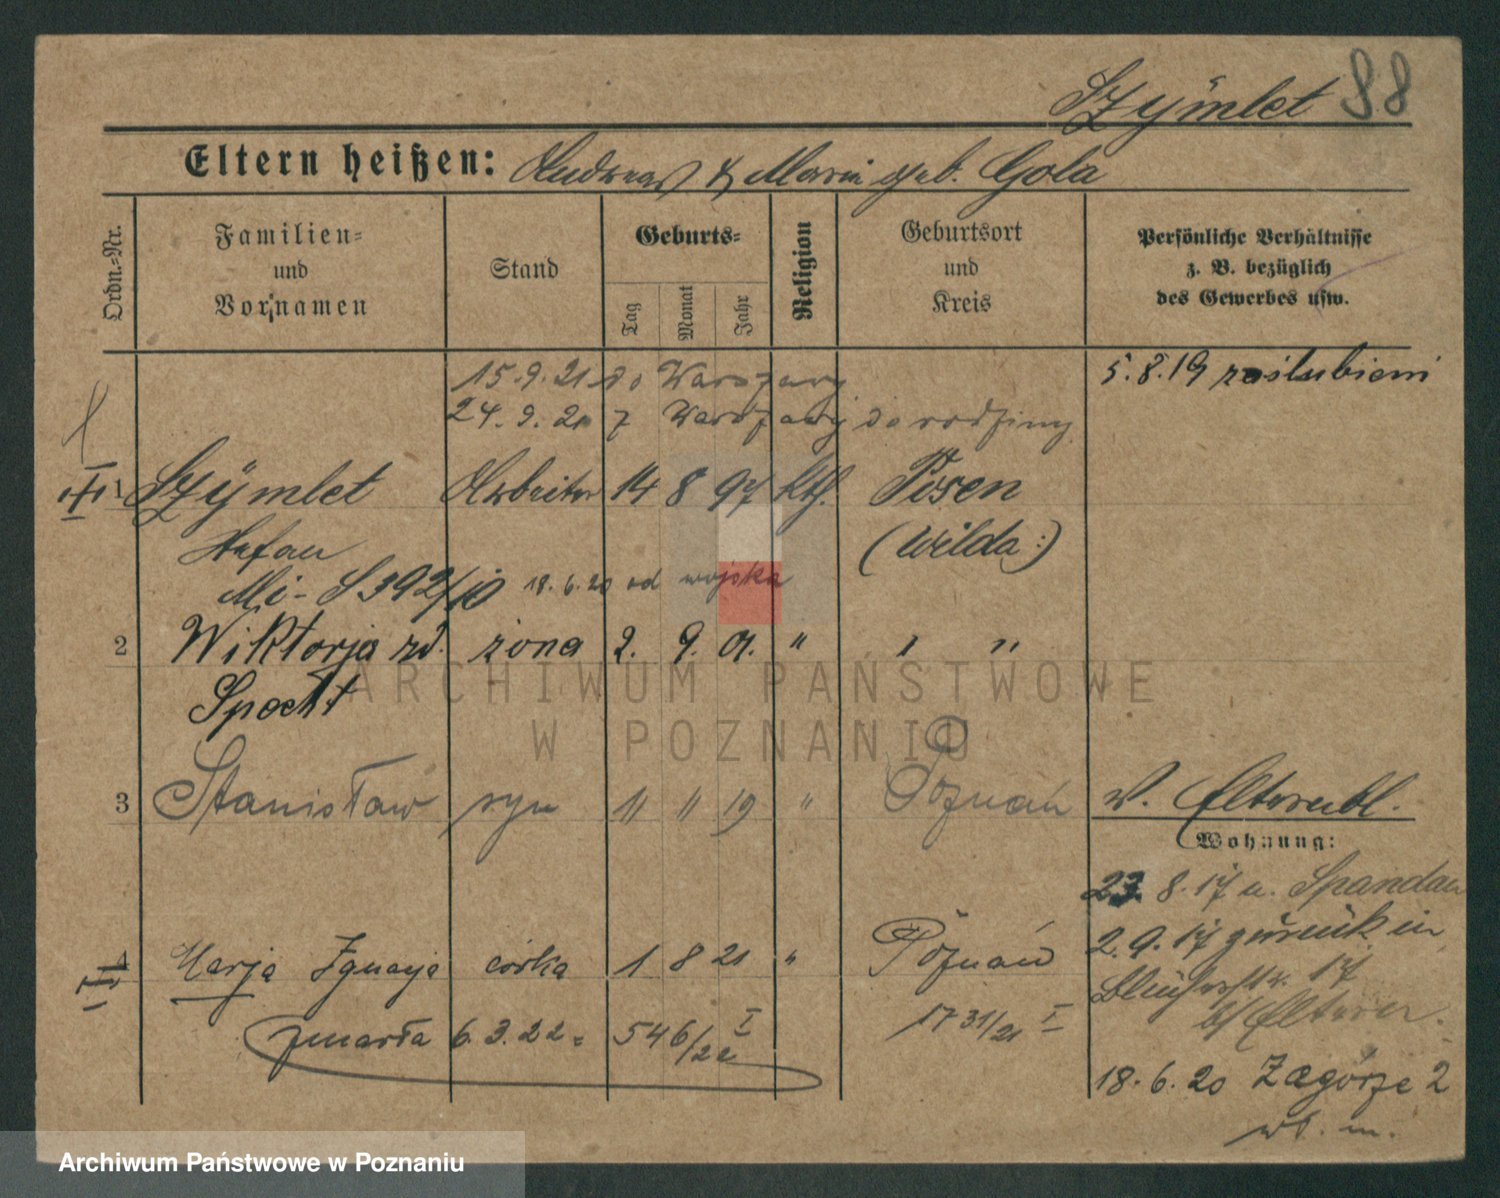 Szymlet 88
Eltern heißen: Andreas & Maria geb. Gola
Ordn.-Nr.
Familien-
und
Vornamen
Stand
Geburts-
Tag
Monat
Jahr
Religion
Geburtsort
und
Kreis
Persönliche Verhältnisse
z. B. bezüglich
des Gewerbes usw.
15.9.21 do Warszawy
5.8.19 zaślubieni
24.9.21 z Warszawy do rodziny
1 Szÿmlet Arbeiter 14 8 97 kth. Posen
Stefan (Wilda:)
18.6.20 od wojska
2 Wiktorja zd. żona 2. 9. 01. " " "
Specht
ARCHIWUM PAŃSTWOWE
W POZNANIU
3 Stanisław syn 11 11 19 " Poznań
b. Elternbl.
Wohnung:
23.8.17 n. Spandau
2.9.17 zurück in
Blücherstr. 17
b/ Eltern.
4 Marja Ignacja córka 1 8 21 " Poznań
zmarła 6.3.22. 546/22 I
1731/21 I
18.6.20 Zagórze 2
Archiwum Państwowe w Poznaniu